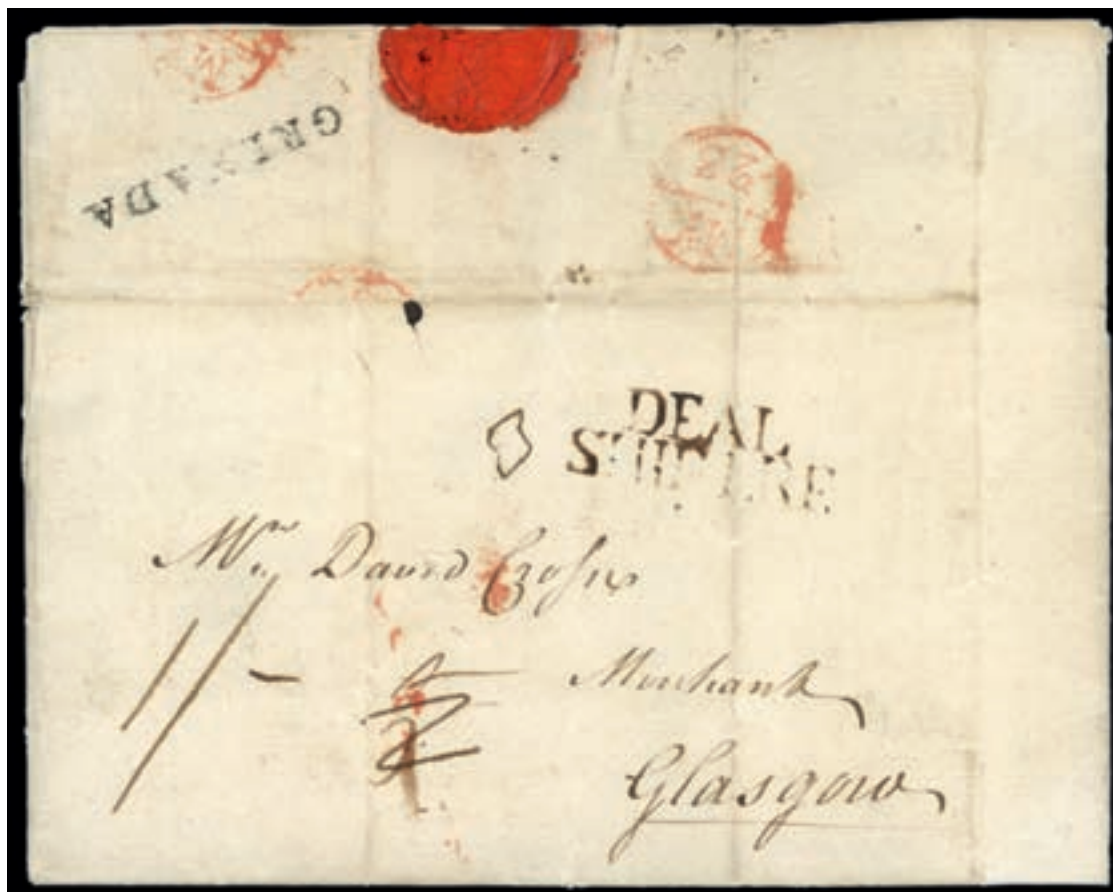 GRENADA
DEAL
SHIP LRE
Mr. David
Merchant
Glasgow
1/-